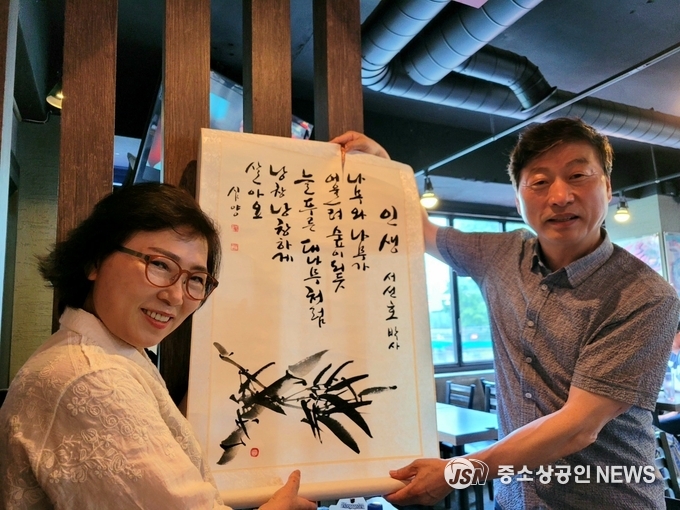 인생 서선호 박사
나무와 나무가
어울려 숲이 되듯
늘 푸른 대나무처럼
낭창낭창하게
살아요
심양
JSN 중소상공인 NEWS